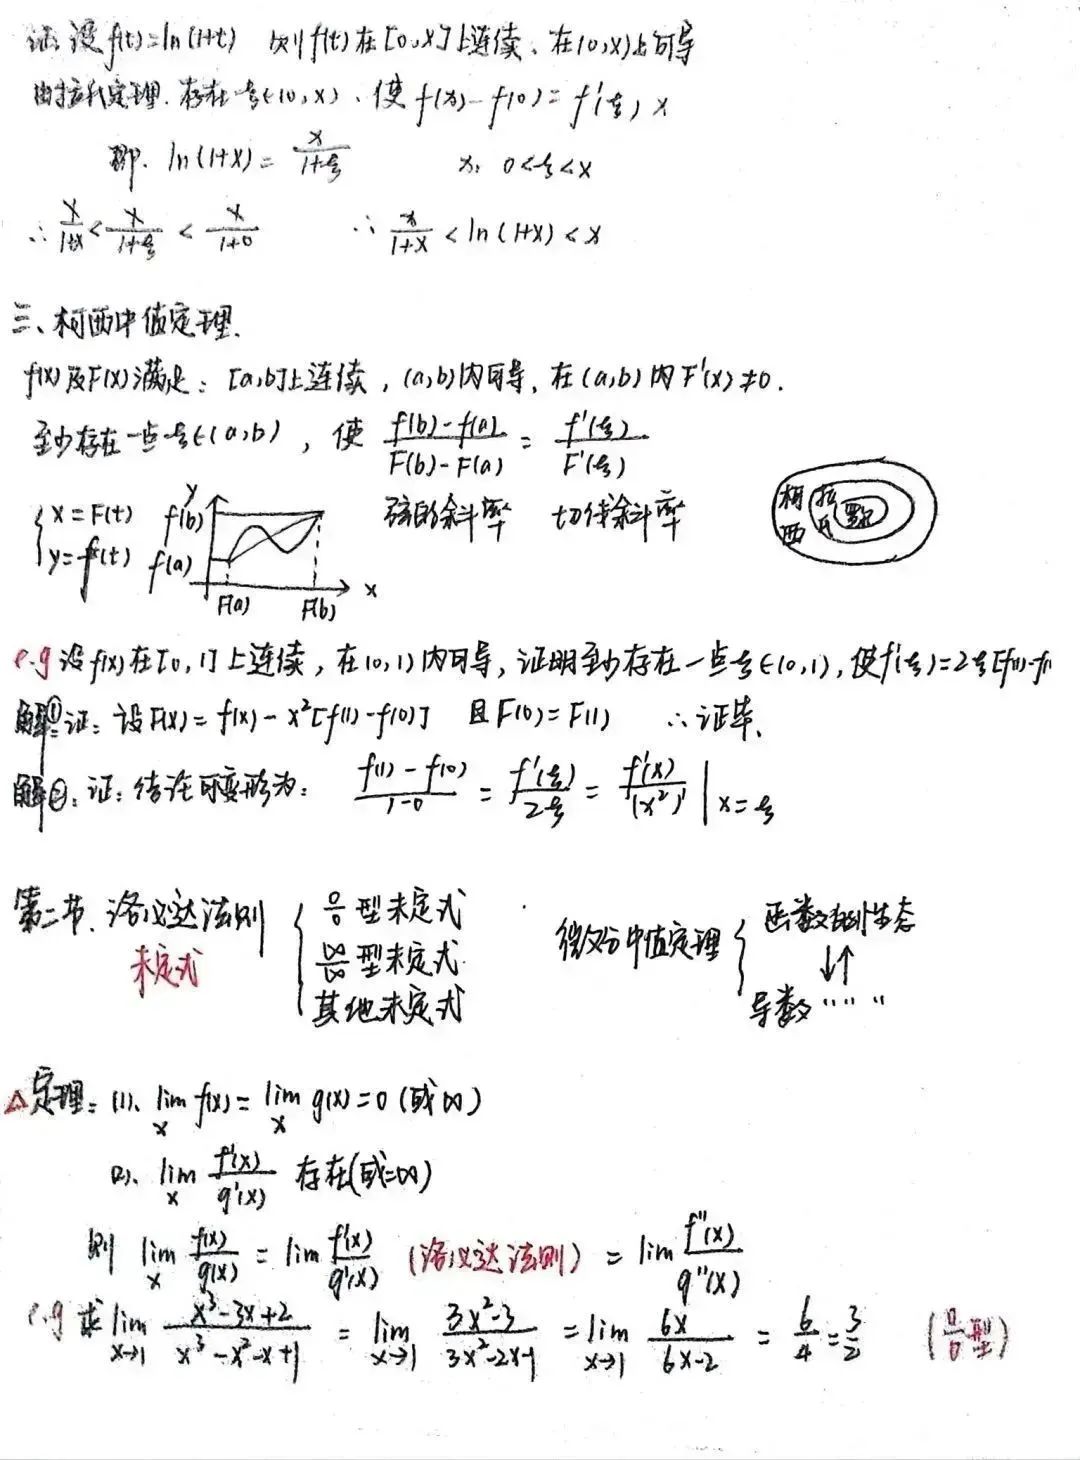 证: 设 f(t)=ln(1+t) 则 f(t) 在 [0,x] 上连续、在(0,x)上可导
由拉氏定理. 存在一ξ∈(0,x)、使 f(x)-f(0)=f'(ξ) x
即. ln(1+x)= x/(1+ξ) x, 0<ξ<x
∴ x/(1+x) < x/(1+ξ) < x/(1+0) ∴ x/(1+x) < ln(1+x) < x
三、柯西中值定理.
f(x)及F(x)满足: [a,b]上连续, (a,b)内可导, 在(a,b)内F'(x)≠0.
至少存在一点ξ∈(a,b), 使 (f(b)-f(a))/(F(b)-F(a)) = f'(ξ)/F'(ξ)
弦的斜率 切线斜率
{ x=F(t)
y=f(t)
y f(b) f(a) F(a) F(b) x
柯西 拉氏 罗
e.g 设f(x)在[0,1]上连续, 在(0,1)内可导, 证明至少存在一点ξ∈(0,1), 使f'(ξ)=2ξ[f(1)-f(
解①: 证: 设F(x)=f(x)-x²[f(1)-f(0)] 且F(0)=F(1) ∴证毕.
解②: 证: 结论可变形为: (f(1)-f(0))/(1-0) = f'(ξ)/2ξ = f'(x)/(x²)' | x=ξ
第二节. 洛必达法则 { 0/0 型未定式
未定式 ∞/∞ 型未定式
其他未定式
微分中值定理 { 函数 性态
↓↑
导数 " " "
△定理: (1). lim x f(x)= lim x g(x)=0 (或∞)
(2). lim x f'(x)/g'(x) 存在(或=∞)
则 lim x f(x)/g(x) = lim f'(x)/g'(x) (洛必达法则) = lim f''(x)/g''(x)
e.g 求 lim x→1 (x³-3x+2)/(x³-x²-x+1) = lim x→1 (3x²-3)/(3x²-2x-1) = lim x→1 6x/(6x-2) = 6/4 = 3/2 (0/0型)